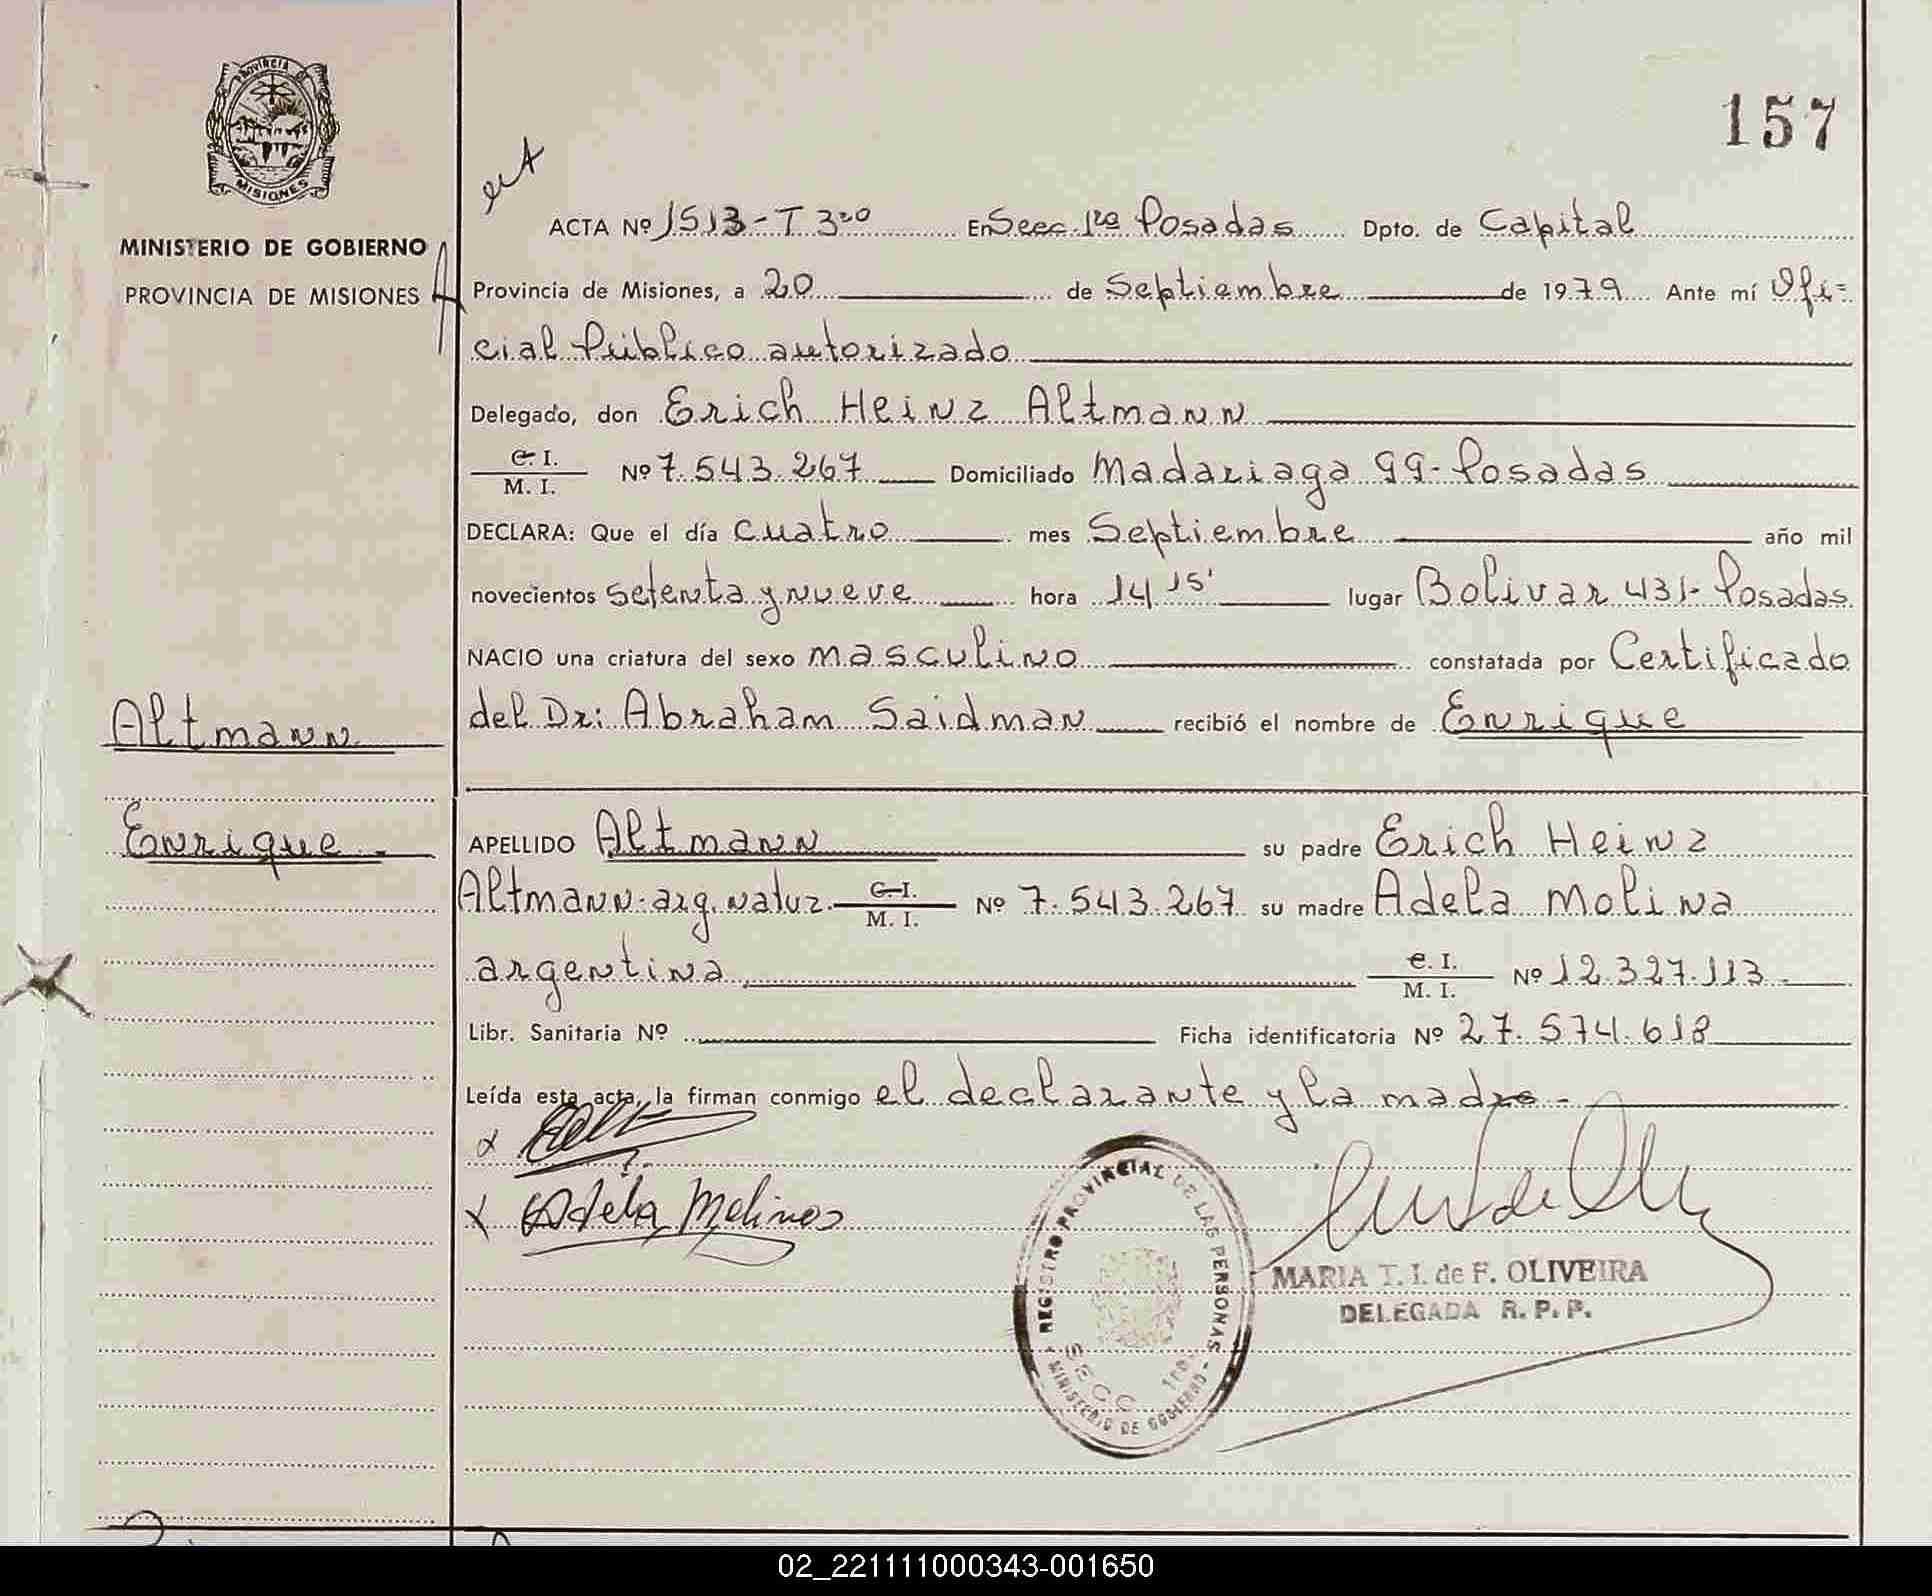 157
PROVINCIA DE
MISIONES
MINISTERIO DE GOBIERNO
PROVINCIA DE MISIONES
ACTA Nº 1513-T 3ro En Secc 1ra Posadas Dpto. de Capital
Provincia de Misiones, a 20 de Septiembre de 1979 Ante mí Ofi=
cial Público autorizado
Delegado, don Erich Heinz Altmann
C. I. / M. I. Nº 7.543.267 Domiciliado Madariaga 99-Posadas
DECLARA: Que el día cuatro mes Septiembre año mil
novecientos setenta y nueve hora 14 15' lugar Bolivar 431-Posadas
NACIO una criatura del sexo masculino constatada por Certificado
del Dr: Abraham Saidman recibió el nombre de Enrique
Altmann
Enrique.-
APELLIDO Altmann su padre Erich Heinz
Altmann-arg.natuz. C. I. / M. I. Nº 7.543.267 su madre Adela Molina
argentina C. I. / M. I. Nº 12.327.113.-
Libr. Sanitaria Nº Ficha identificatoria Nº 27.574.618
Leída esta acta, la firman conmigo el declarante y la madre-
x
x Adela Molinas
REGISTRO PROVINCIAL DE LAS PERSONAS -
SECC 1ra.
MINISTERIO DE GOBIERNO
MARIA T. I. de F. OLIVEIRA
DELEGADA R. P. P.
02_221111000343-001650